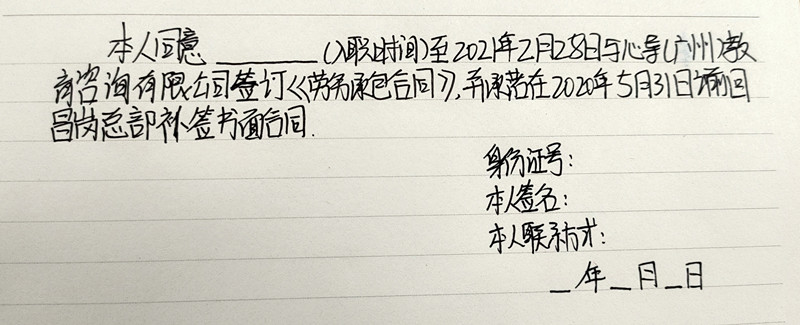 本人同意________(入职时间)至2021年2月28日与心导(广州)教
育咨询有限公司签订《劳务承包合同》,并承诺在2020年5月31日前回
昌岗总部补签书面合同.
身份证号:
本人签名:
本人联系方式:
_年_月_日